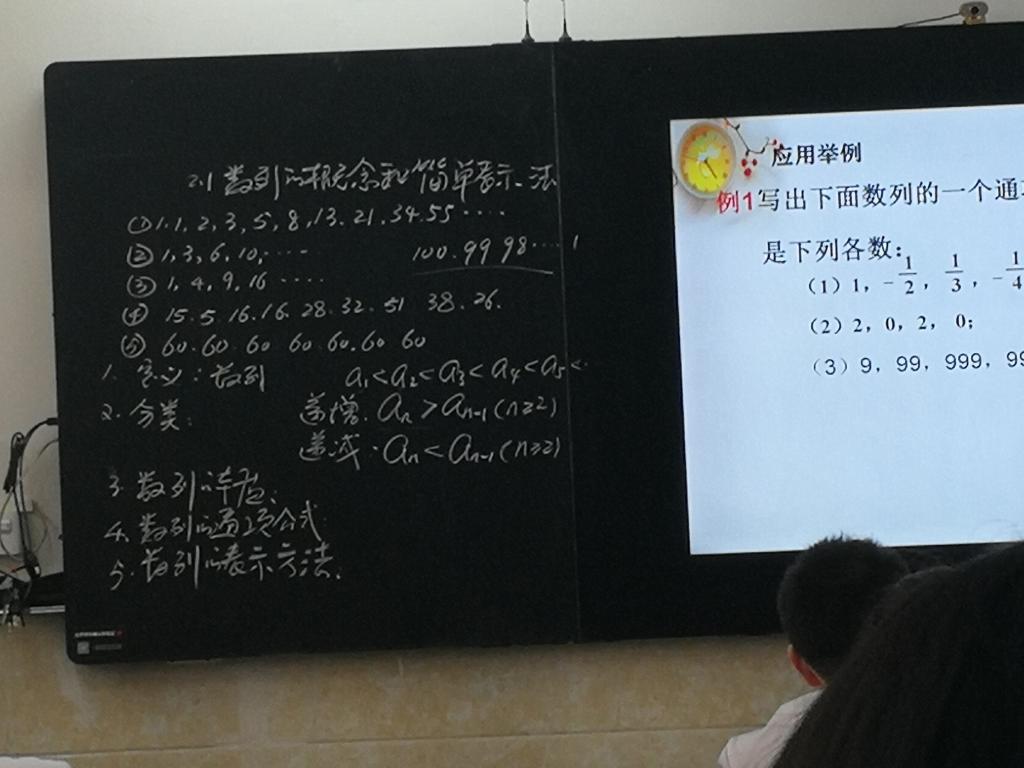 2.1 数列的概念和简单表示法
① 1.1, 2, 3, 5, 8, 13. 21. 34. 55 ····
② 1, 3, 6, 10, ····
100. 99 98 ···· 1
③ 1, 4, 9, 16 ····
④ 15. 5. 16. 16. 28. 32. 51 38. 26.
⑤ 60. 60 60 60 60. 60 60
1. 定义: 数列 a₁<a₂<a₃<a₄<a₅<
2. 分类: 递增. aₙ>aₙ₋₁(n≥2)
递减. aₙ<aₙ₋₁(n≥2)
3. 数列的
4. 数列的通项公式
5. 数列的表示方法.
应用举例
例1写出下面数列的一个通
是下列各数:
(1) 1, -1/2, 1/3, -1/4
(2) 2, 0, 2, 0;
(3) 9, 99, 999, 99